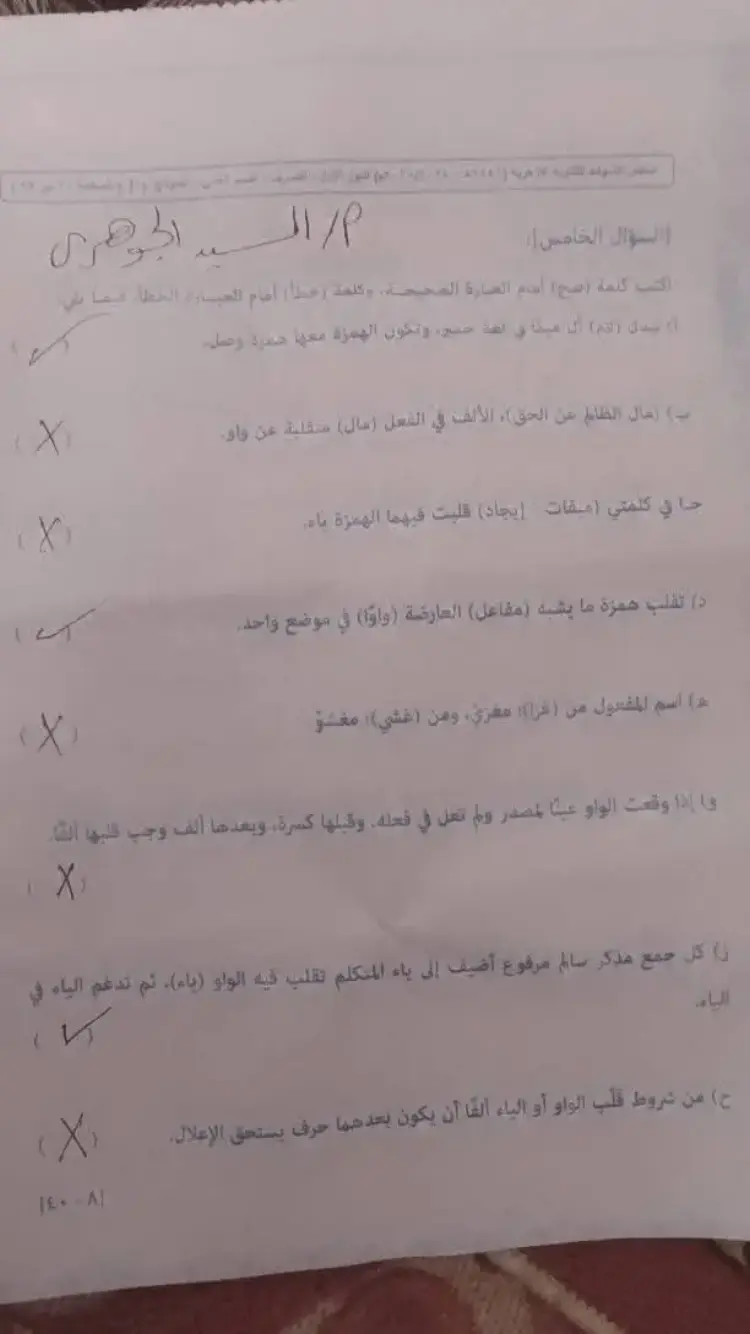 م/ السيد الجوهري
[السؤال الخامس]:
اكتب كلمة (صح) أمام العبارة الصحيحة، وكلمة (خطأ) أمام العبارة الخطأ، فيما يلي:
أ) تبدل (لام) أل ميمًا في لغة حمير، وتكون الهمزة معها همزة وصل. (✓)
ب) (مال الظالم عن الحق)، الألف في الفعل (مال) منقلبة عن واو. (X)
جـ) في كلمتي (ميقات - إيجاد) قلبت فيهما الهمزة ياء. (X)
د) تقلب همزة ما يشبه (مفاعل) العارضة (واوًا) في موضع واحد. (✓)
هـ) اسم المفعول من (غزا): مغزيّ، ومن (غشي): مغشوّ (X)
و) إذا وقعت الواو عينًا لمصدر ولم تعل في فعله، وقبلها كسرة، وبعدها ألف وجب قلبها ألفًا.
(X)
ز) كل جمع مذكر سالم مرفوع أضيف إلى ياء المتكلم تقلب فيه الواو (ياء)، ثم تدغم الياء في
الياء.
(✓)
ح) من شروط قلب الواو أو الياء ألفًا أن يكون بعدهما حرف يستحق الإعلال. (X)
[٤٠ - ٨]